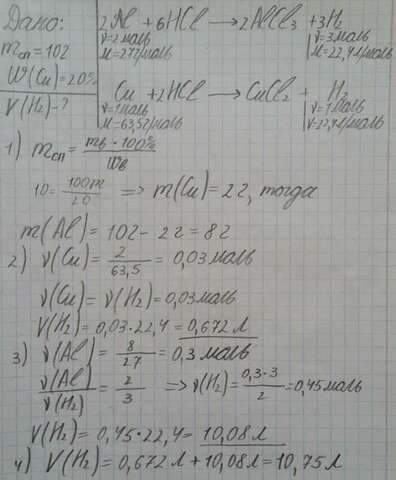 Дано:
mсп=10г
W(Cu)=20%
V(H₂)-?
2Al + 6HCl → 2AlCl₃ + 3H₂
ν=2моль ν=3моль
M=27г/моль M=22,4л/моль
Cu + 2HCl → CuCl₂ + H₂
ν=1моль ν=1моль
M=63,5г/моль V=22,4л/моль
1) mсп = mв·100% / Wв
10 = 100m / 20 => m(Cu)=2г, тогда
m(Al)=10г-2г=8г
2) ν(Cu) = 2 / 63,5 = 0,03моль
ν(Cu)=ν(H₂)=0,03моль
V(H₂)=0,03·22,4=0,672л
3) ν(Al) = 8 / 27 = 0,3моль
ν(Al) / ν(H₂) = 2 / 3 => ν(H₂) = 0,3·3 / 2 = 0,45моль
V(H₂)=0,45·22,4=10,08л
4) V(H₂)=0,672л+10,08л=10,75л